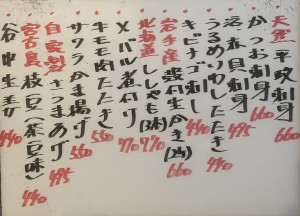 天然 平政刺身 660
かつお刺身 660
活赤貝刺身 495
うるめいわしたたき 440
キビナゴ刺し 440
岩手産 殻付生かき(2ヶ) 660
北海道 ししゃも(3本) 770
メバル煮付け 770
牛モモ肉たたき
サクラかき揚げ 550
自家製 さつまあげ 495
宮古島 枝豆(茶豆味) 440
谷中生姜 440